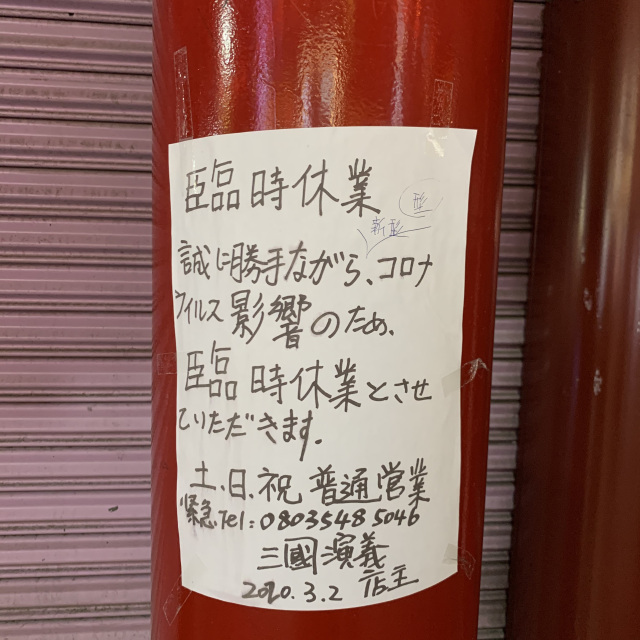 臨時休業
形
新型
誠に勝手ながら、コロナ
ウイルス影響のため、
臨時休業とさせ
ていただきます。
土、日、祝 普通営業
緊急Tel:08035485046
三國演義
2020.3.2 店主